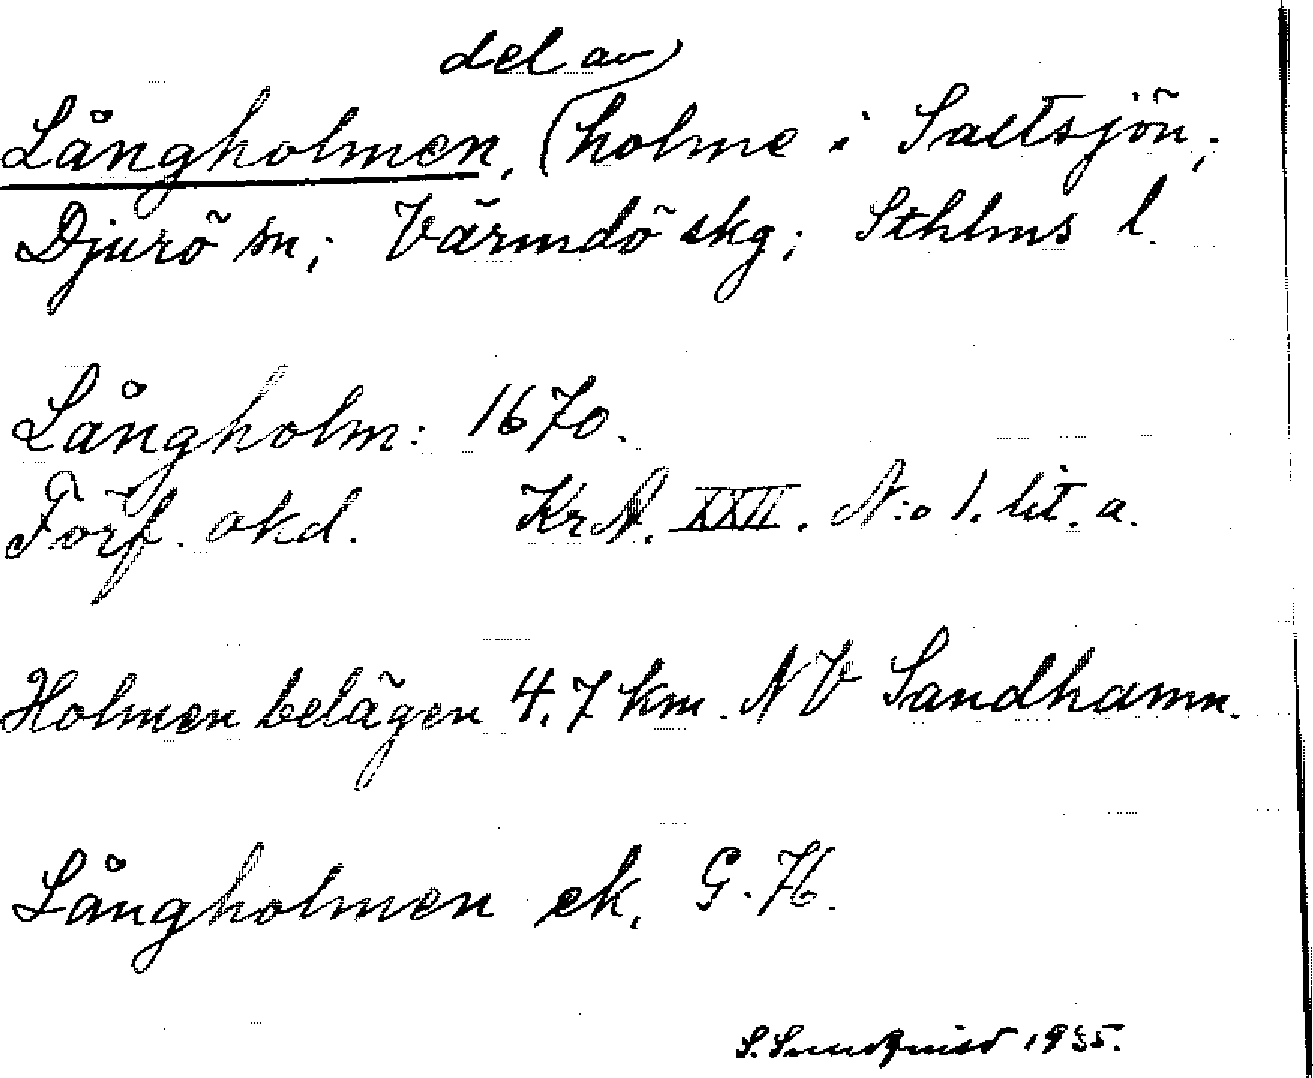 del av
Långholmen, holme i Saltsjön;
Djurö sn; Värmdö skg; Sthlms l.
Långholm: 1670.
Förf. okd. KrA. XXII. N:o 1. lit. a.
Holmen belägen 4.7 km. NV Sandhamn.
Långholmen ek. G.
S. Sundquist 1935.